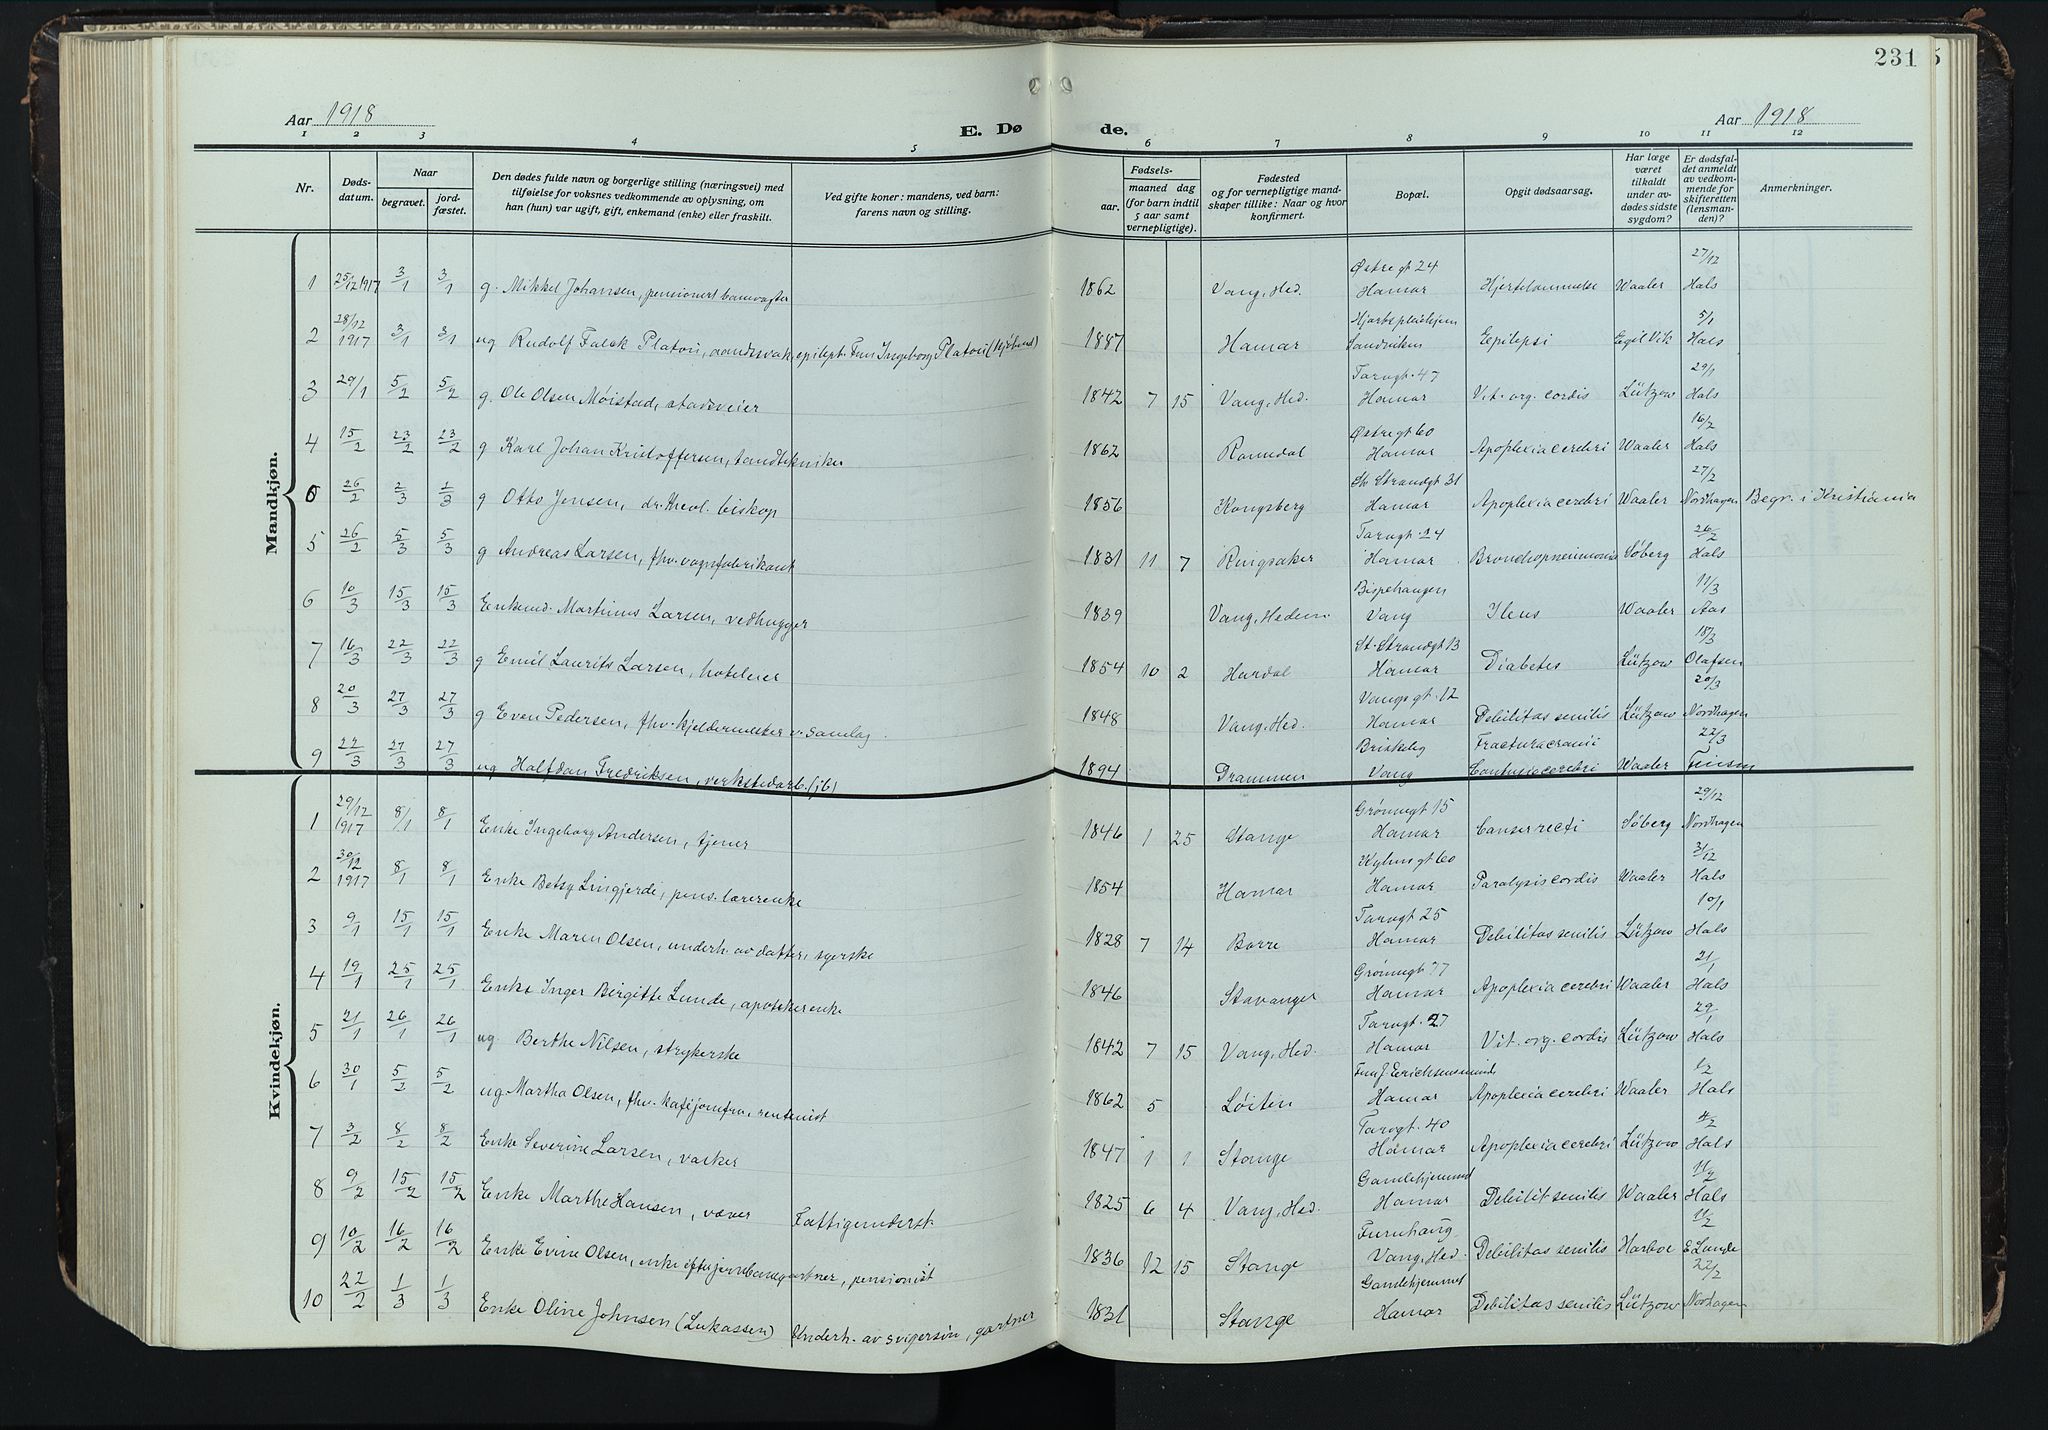 231 5
Aar 1918 E. Dø de. Aar 1918
1 2 3 4 5 6 7 8 9 10 11 12
Nr.
Døds-
datum.
Naar
begravet.
jord-
fæstet.
Den dødes fulde navn og borgerlige stilling (næringsvei) med
tilføielse for voksnes vedkommende av oplysning, om
han (hun) var ugift, gift, enkemand (enke) eller fraskilt.
Ved gifte koner: mandens, ved barn:
farens navn og stilling.
aar.
Fødsels-
maaned dag
(for barn indtil
5 aar samt
vernepligtige).
Fødested
og for vernepligtige mand-
skaper tillike: Naar og hvor
konfirmert.
Bopæl.
Opgit dødsaarsag.
Har læge
været
tilkaldt
under av-
dødes sidste
sygdom?
Er dødsfal-
det anmeldt
av vedkom-
mende for
skifteretten
(lensman-
den)?
Anmerkninger.
Mandkjøn.
Østregt 24 27/12
1 25/12 1917 3/1 3/1 g. Mikkel Johansen, pensionert banevagter 1862 Vang, Hed. Hamar Hjertelammelse Waaler Hals
28/12 5/1
2 1917 3/1 3/1 ug Rudolf Falck Platou, aandssvak, epilept. Fru Ingeborg Platou 1887 Hamar Sandviken Epilepsi Egil Vik Hals
Torvgt. 47 29/1
3 29/1 5/2 5/2 g. Ole Olsen Møistad, 1842 7 15 Vang, Hed. Hamar Vit. org. cordis Lützow Hals
Østregt 60 16/2
4 15/2 23/2 23/2 g Karl Johan Kristoffersen, tandtekniker 1862 Romedal Hamar Apoplexia cerebri Waaler Hals
St. Strandgt 31 27/2
26/2 2/3 1/3 g Otto Jensen, dr. theol. biskop 1856 Kongsberg Hamar Apoplexia cerebri Waaler Nordhagen Begr. i Kristiania
Torvgt. 14 26/2
5 26/2 5/3 5/3 g Andreas Larsen, fhv. vognfabrikant 1831 11 7 Ringsaker Hamar Bronchopneumonia Søberg Hals
Bispehaugen 11/3
6 10/3 15/3 15/3 Enkemd. Martinus Larsen, vedhugger 1839 Vang, Hedem Vang Ileus Waaler Aas
St. Strandgt 13 18/3
7 16/3 22/3 22/3 g Emil Laurits Larsen, hoteleier 1854 10 2 Hurdal Hamar Diabetes Lützow Olafsen
Vangsgt. 12 20/3
8 20/3 27/3 27/3 g Even Pedersen, fhv. kjeldermester v. Samlag. 1848 Vang, Hed. Hamar Debilitas senilis Lützow Nordhagen
Briskeby Fractura cranii 22/3
9 22/3 27/3 27/3 ug Halfdan Fredriksen, verkstedarb. (jb) 1894 Drammen Vang Contusio cerebri Waaler
Kvindekjøn.
29/12 Grønnegt 15 29/12
1 1917 8/1 8/1 Enke Ingeborg Andersen, tjener 1846 1 25 Stange Hamar Canser recti Søberg Nordhagen
30/12 60 31/12
2 1917 8/1 8/1 Enke Betsy Lingjerde, pens. lærerenke 1854 Hamar Hamar Paralysis cordis Waaler Hals
Torvgt 25 10/1
3 9/1 15/1 15/1 Enke Maren Olsen, underh. av datter, syerske 1828 7 14 Borre Hamar Debilitas senilis Lützow Hals
Grønnegt 77 21/1
4 19/1 25/1 25/1 Enke Inger Birgitte Lunde, apotekerenke 1846 Stavanger Hamar Apoplexia cerebri Waaler Hals
Torvgt. 27 29/1
5 21/1 26/1 26/1 ug. Berthe Nilsen, strykerske 1842 7 15 Vang, Hed. Hamar Vit. org. cordis Lützow Hals
Fru J. Erichsensminde 1/2
6 30/1 5/2 5/2 ug. Martha Olsen, fhv. kafejomfru, rentenist 1862 5 Løiten Hamar Apoplexia cerebri Waaler Hals
Torvgt. 40 4/2
7 3/2 8/2 8/2 Enke Severine Larsen, vasker 1847 1 1 Stange Hamar Apoplexia cerebri Lützow Hals
Gamlehjemmet 11/2
8 9/2 15/2 15/2 Enke Marthe Hansen, væver Fattigunderst. 1825 6 4 Vang, Hed. Hamar Debilit senilis Waaler Hals
Furuhaug 11/2
9 10/2 16/2 16/2 Enke Evine Olsen, enke efter jernbanegartner, pensionist 1836 12 15 Stange Vang, Hed. Debilitas senilis Harboe E Lunde
Gamlehjemmet 22/2
10 22/2 1/3 1/3 Enke Oline Johnsen (Lukassen) Underh. av svigersøn, gartner 1831 Stange Hamar Debilitas senilis Lützow Nordhagen